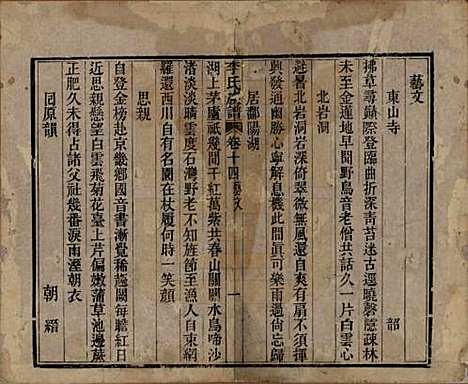 藝文
東山寺 韶
拂草尋蹟際登臨曲折深靑苔迷古逕曉磬隱疎林
未至金蓮地早聞野鳥音老僧共話久一片白雲心
北岩洞
避暑北岩洞岩深倚翠微無風還自爽有月不須輝
興發通幽勝心寧解息機此間眞可樂雨過尙忘歸
居鄱陽湖
李氏族譜 卷十四 藝文 一
湖上茅廬祇幾間千紅萬紫共春山關關水鳥啼沙
渚淡淡晴雲度石灣野老不來樽節至漁人自束網
羅還西川自有名園在杖履何時一笑顏
思親
自登金榜赴京畿鄕國音書漸覺稀趨闕每瞻紅日
近思親懸望白雲飛菊花臺上芦偏嫩蒲草池邊蕨
正肥久未得占諸父社幾番淚雨溼朝衣
回原韻 朝縉